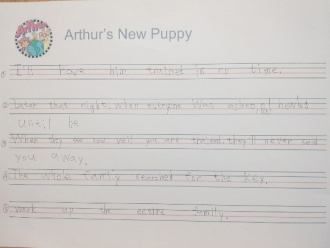 Arthur
Arthur's New Puppy
① I'll have him trained in no time.
② Later that night, when everyone was asleep, howled
until he
③ When they see how well you are trained, they'll never send
you away.
④ The whole family searched for the key.
⑤ woke up the entire family.